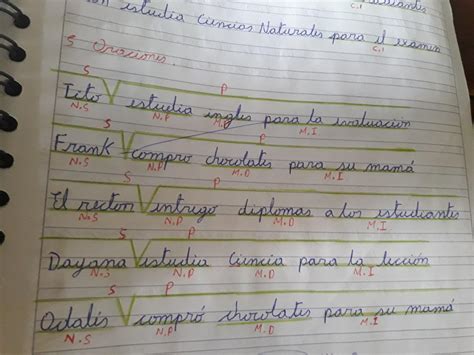 estudia Ciencias Naturales para el examen
C.I
5 Oraciones.
S P
Tito estudia ingles para la evaluación
N.S N.P M.D M.I
S P
Frank compro chocolates para su mamá
N.S N.P M.D M.I
S P
El rector entrego diplomas a los estudiantes
N.S N.P M.D M.I
S P
Dayana estudia Ciencia para la lección
N.S N.P M.D M.I
S P
Odalis compró chocolates para su mamá
N.S N.P M.D M.I